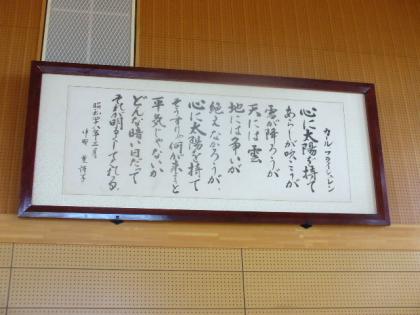 カール・フライシュレン
心に太陽を持て
あらしが吹こうが
雪が降ろうが
天には雲
地には争いが
絶えなかろうが
心に太陽を持て
そうすりゃ何が来ようと
平気じゃないか
どんな暗い日だって
それが明るくしてくれる
昭和四八年三月